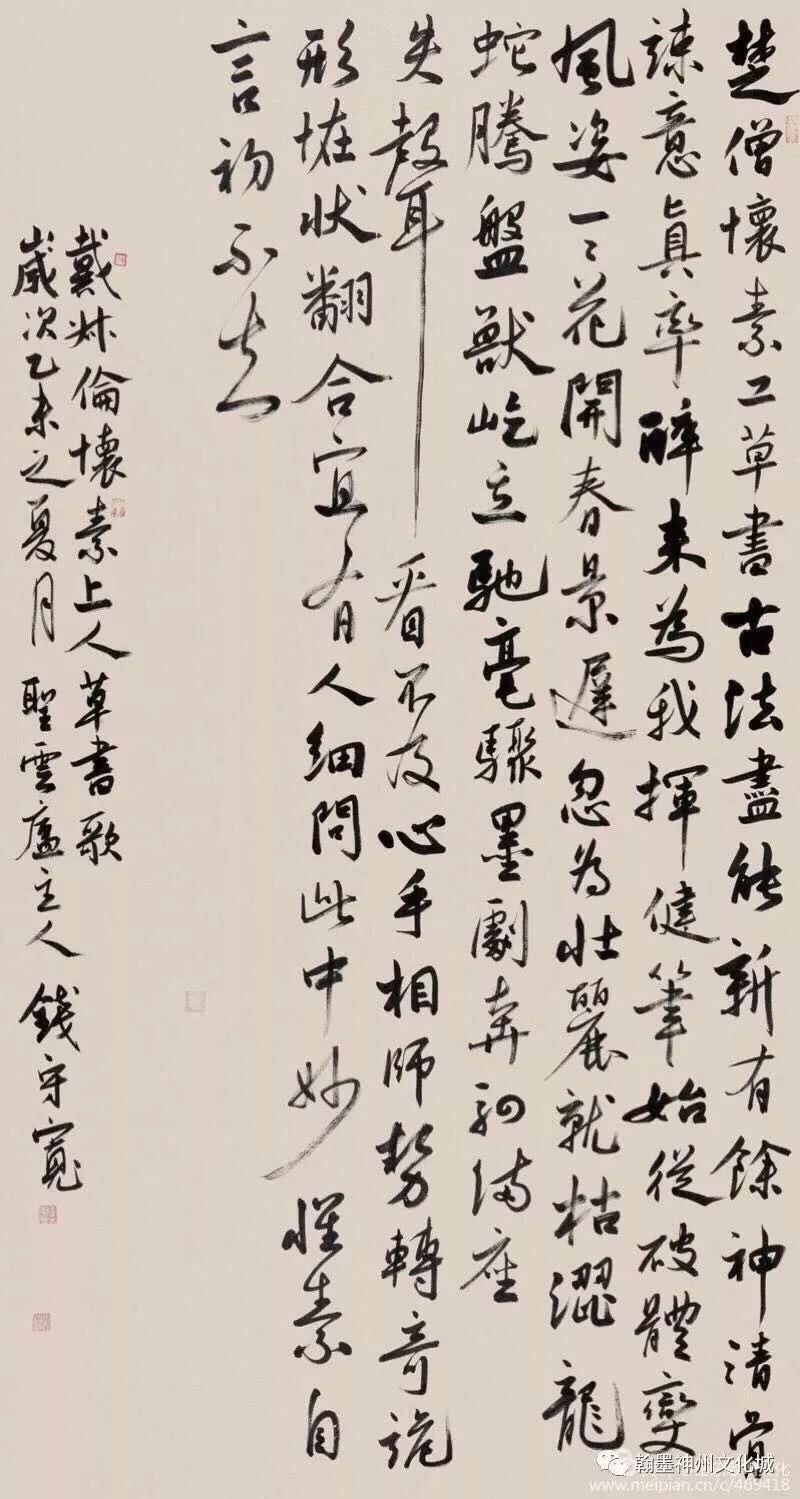 楚僧懷素工草書古法盡能新有餘神清骨
竦意真率醉來為我揮健筆始從破體變
風姿一〻花開春景遲忽為壯麗就枯澀龍
蛇騰盤獸屹立馳毫驟墨劇奔駟滿座
失聲看不及心手相師勢轉奇詭
形恠狀翻合宜有人細問此中妙懷素自
言初不知
戴叔倫懷素上人草書歌
歲次乙未之夏月聖雲廬主人錢守寬
翰墨神州文化城
www.meipian.cn/c/469418